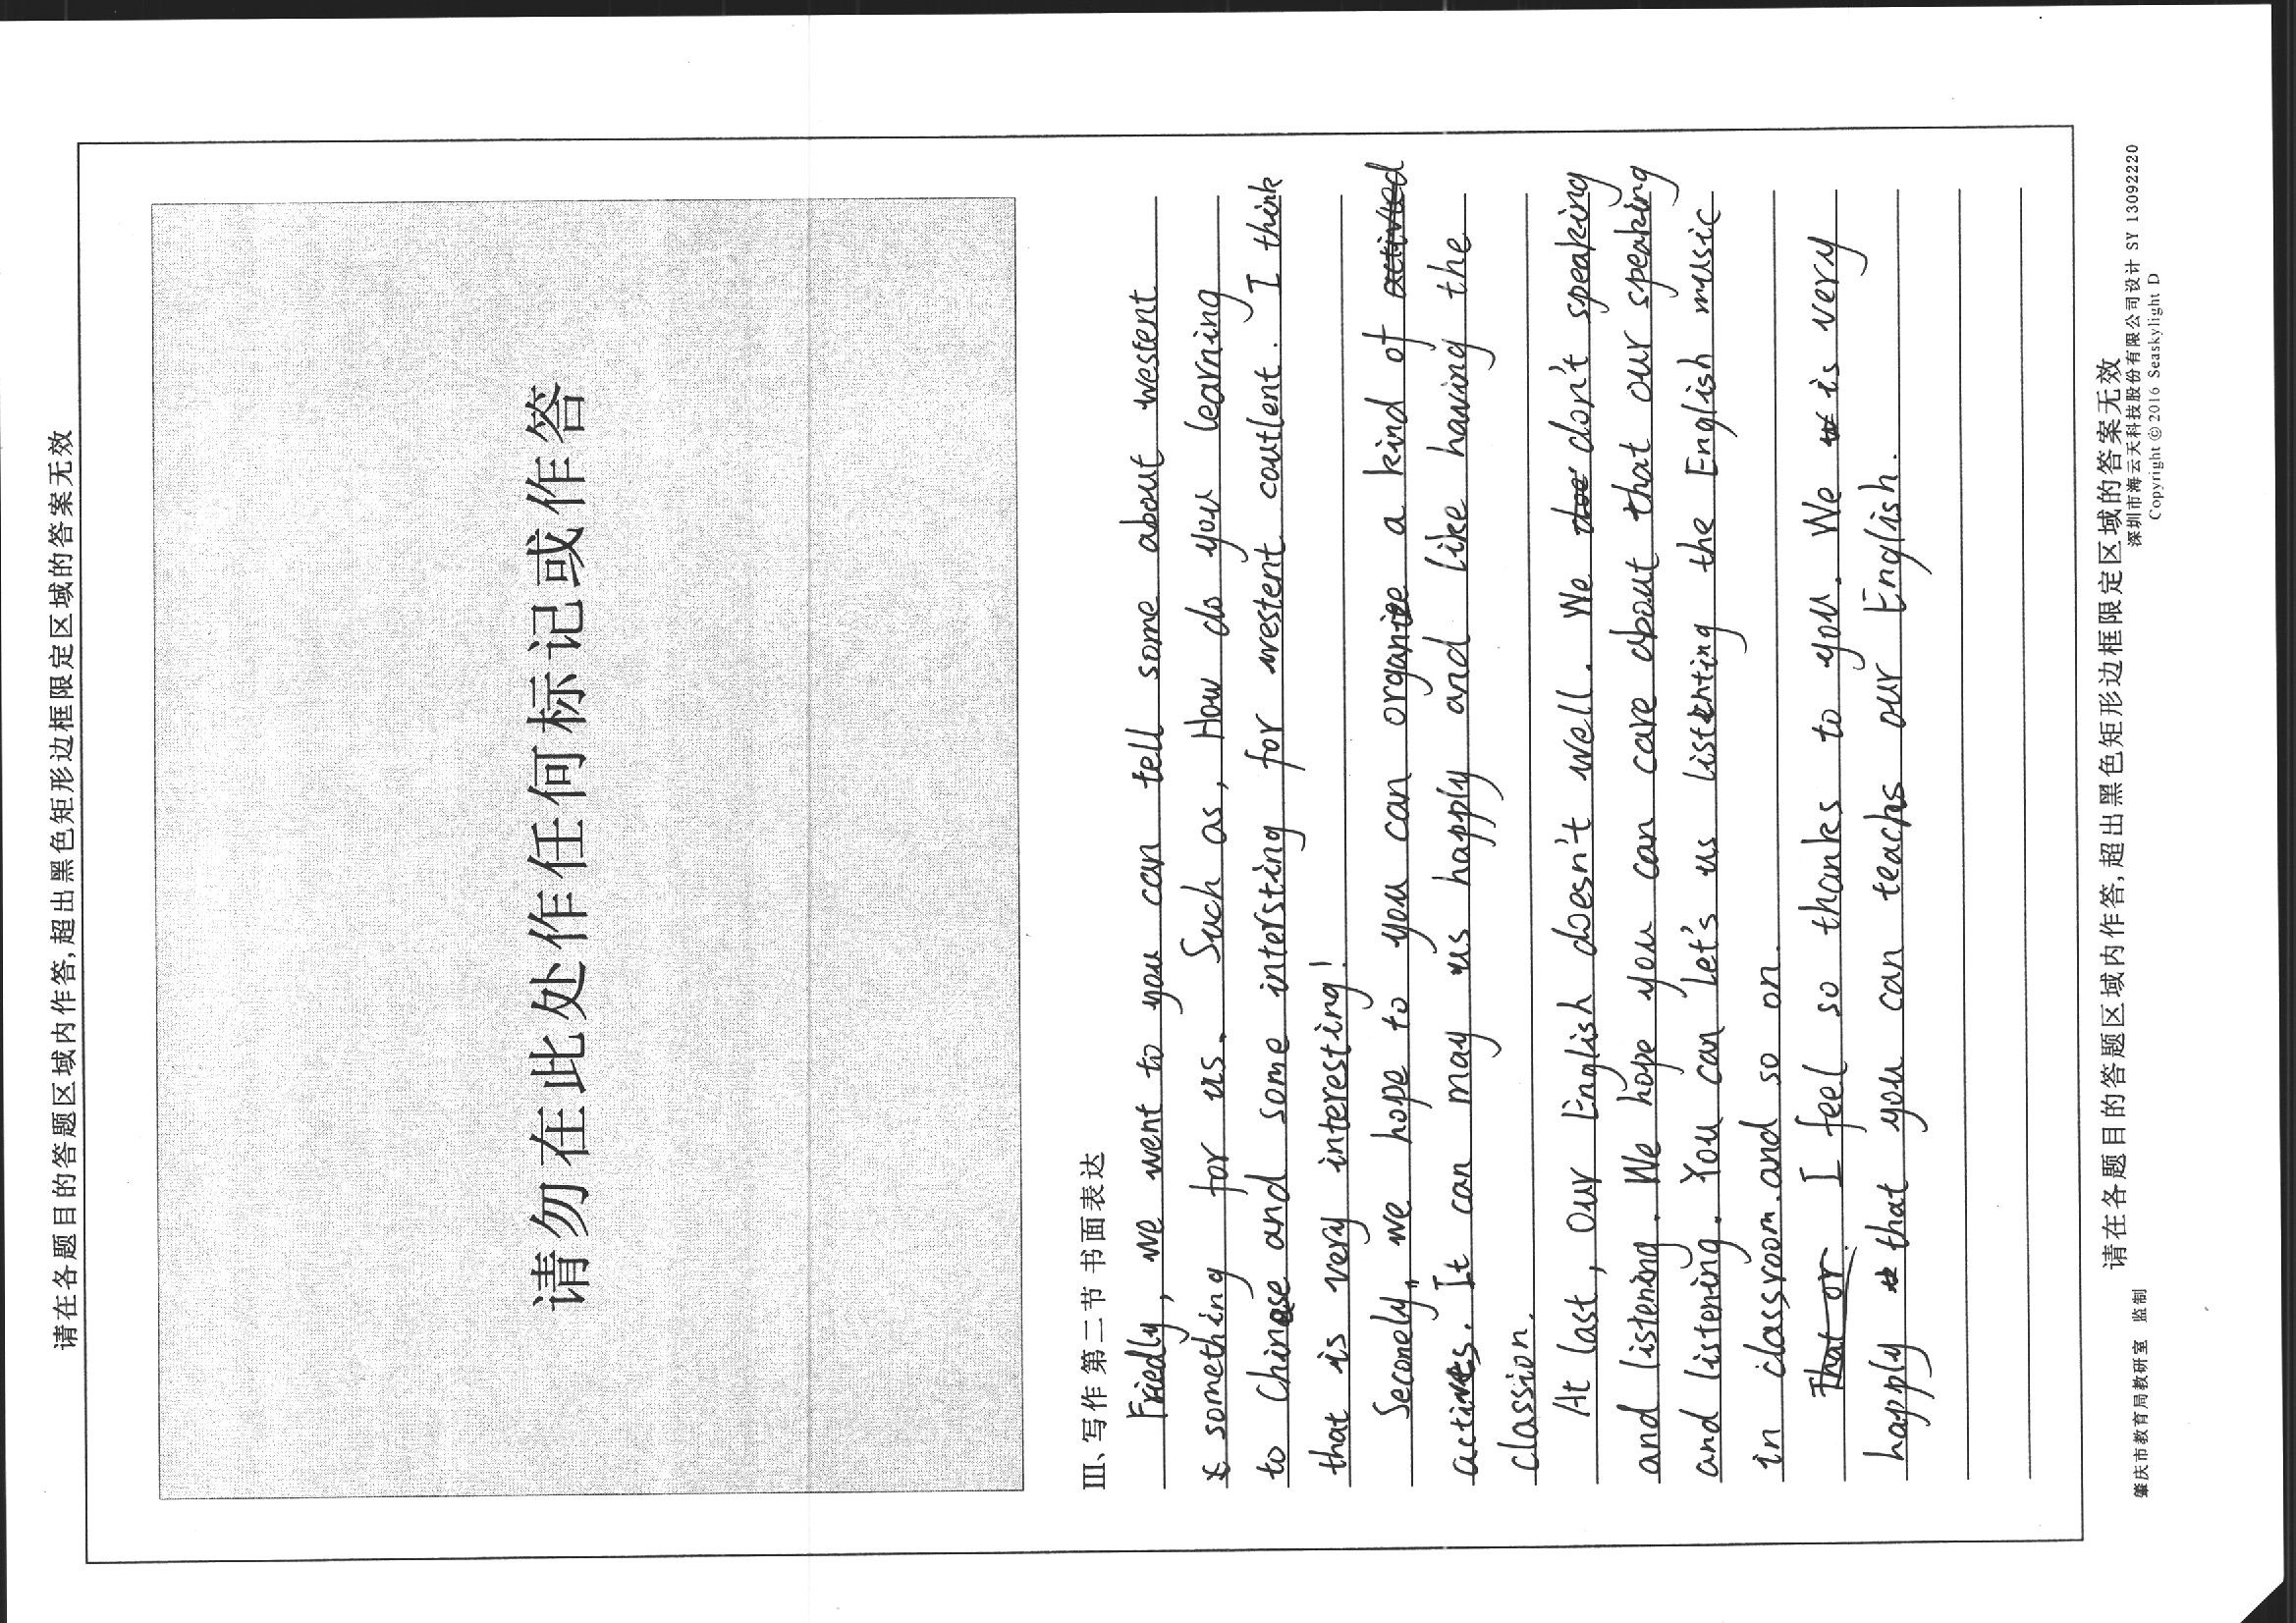 请在各题目的答题区域内作答,超出黑色矩形边框限定区域的答案无效
请勿在此处作任何标记或作答
III、写作 第二节 书面表达
Friedly, we went to you can tell some about westent
something for us. Such as, How do you learning
to Chinese and some intersting for westent coutlent. I think
that is very interesting!
Seconely, we hope to you can organize a kind of actived
actives. It can may us happly and like having the
classion.
At last, our English doesn't well. We don't speaking
and listening. We hope you can care about that our speaking
and listening. You can Let's us listenting the English music
in classroom and so on.
That or I feel so thanks to you. We is very
happly that you can teachs our English.
请在各题目的答题区域内作答,超出黑色矩形边框限定区域的答案无效
肇庆市教育局教研室 监制
深圳市海云天科技股份有限公司设计 SY 13092220
Copyright ©2016 Seaskylight D